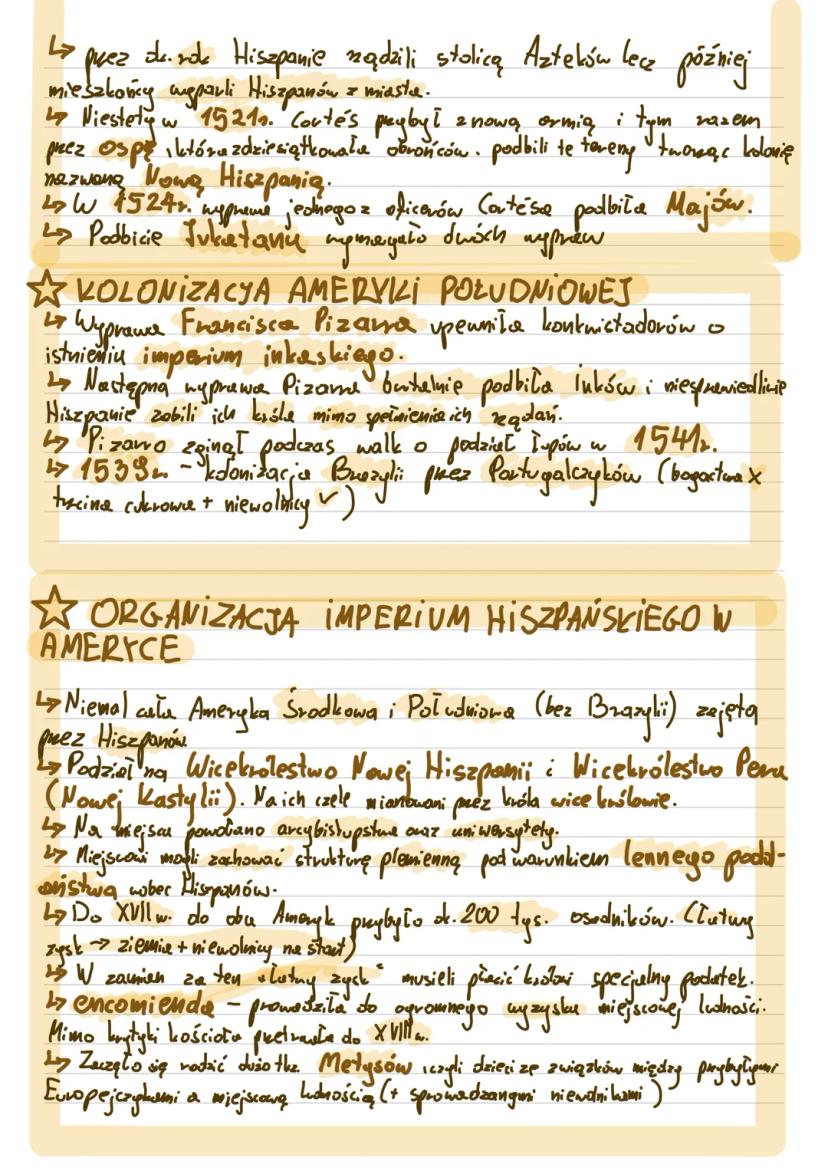 ↳ przez ok. rok Hiszpanie rządzili stolicą Azteków lecz później
mieszkańcy wyparli Hiszpanów z miasta.
↳ Niestety w 1521r. Cortés przybył z nową armią i tym razem
przez ospę, która zdziesiątkowała obrońców. podbili te tereny tworząc kolonię
nazwaną Nową Hiszpanią.
↳ W 1524r. wyprawa jednego z oficerów Cortésa podbiła Majów.
↳ Podbicie Jukatanu wymagało dwóch wypraw
☆ KOLONIZACJA AMERYKI POŁUDNIOWEJ
↳ Wyprawa Francisca Pizarra upewniła konkwistadorów o
istnieniu imperium inkaskiego.
↳ Następna wyprawa Pizarra brutalnie podbiła Inków i niesprawiedliwie
Hiszpanie zabili ich króla mimo spełnienia ich rządań.
↳ Pizarro zginął podczas walk o podział łupów w 1541r.
↳ 1539r. - kolonizacja Brazylii przez Portugalczyków (bogactwa x
trzcina cukrowa + niewolnicy ✓)
☆ ORGANIZACJA IMPERIUM HISZPAŃSKIEGO W
AMERYCE
↳ Niemal cała Ameryka Środkowa i Południowa (bez Brazylii) zajęta
przez Hiszpanów
↳ Podział na Wicekrólestwo Nowej Hiszpanii i Wicekrólestwo Peru
(Nowej Kastylii). Na ich czele mianowani przez króla wicekrólowie.
↳ Na miejscu powołano arcybiskupstwa oraz uniwersytety.
↳ Miejscowi mogli zachować strukturę plemienną pod warunkiem lennego podd-
aństwa wobec Hiszpanów.
↳ Do XVII w. do obu Ameryk przybyło ok. 200 tys. osadników. (Łatwy
zysk → ziemia + niewolnicy na start)
↳ W zamian za ten "łatwy zysk" musieli płacić królowi specjalny podatek.
↳ encomienda - prowadziła do ogromnego wyzysku miejscowej ludności.
Mimo krytyki kościoła przetrwała do XVIII w.
↳ Zaczęło się rodzić dużo tkz. Metysów, czyli dzieci ze związków między przybyłymi
Europejczykami a miejscową ludnością (+ sprowadzanymi niewolnikami)